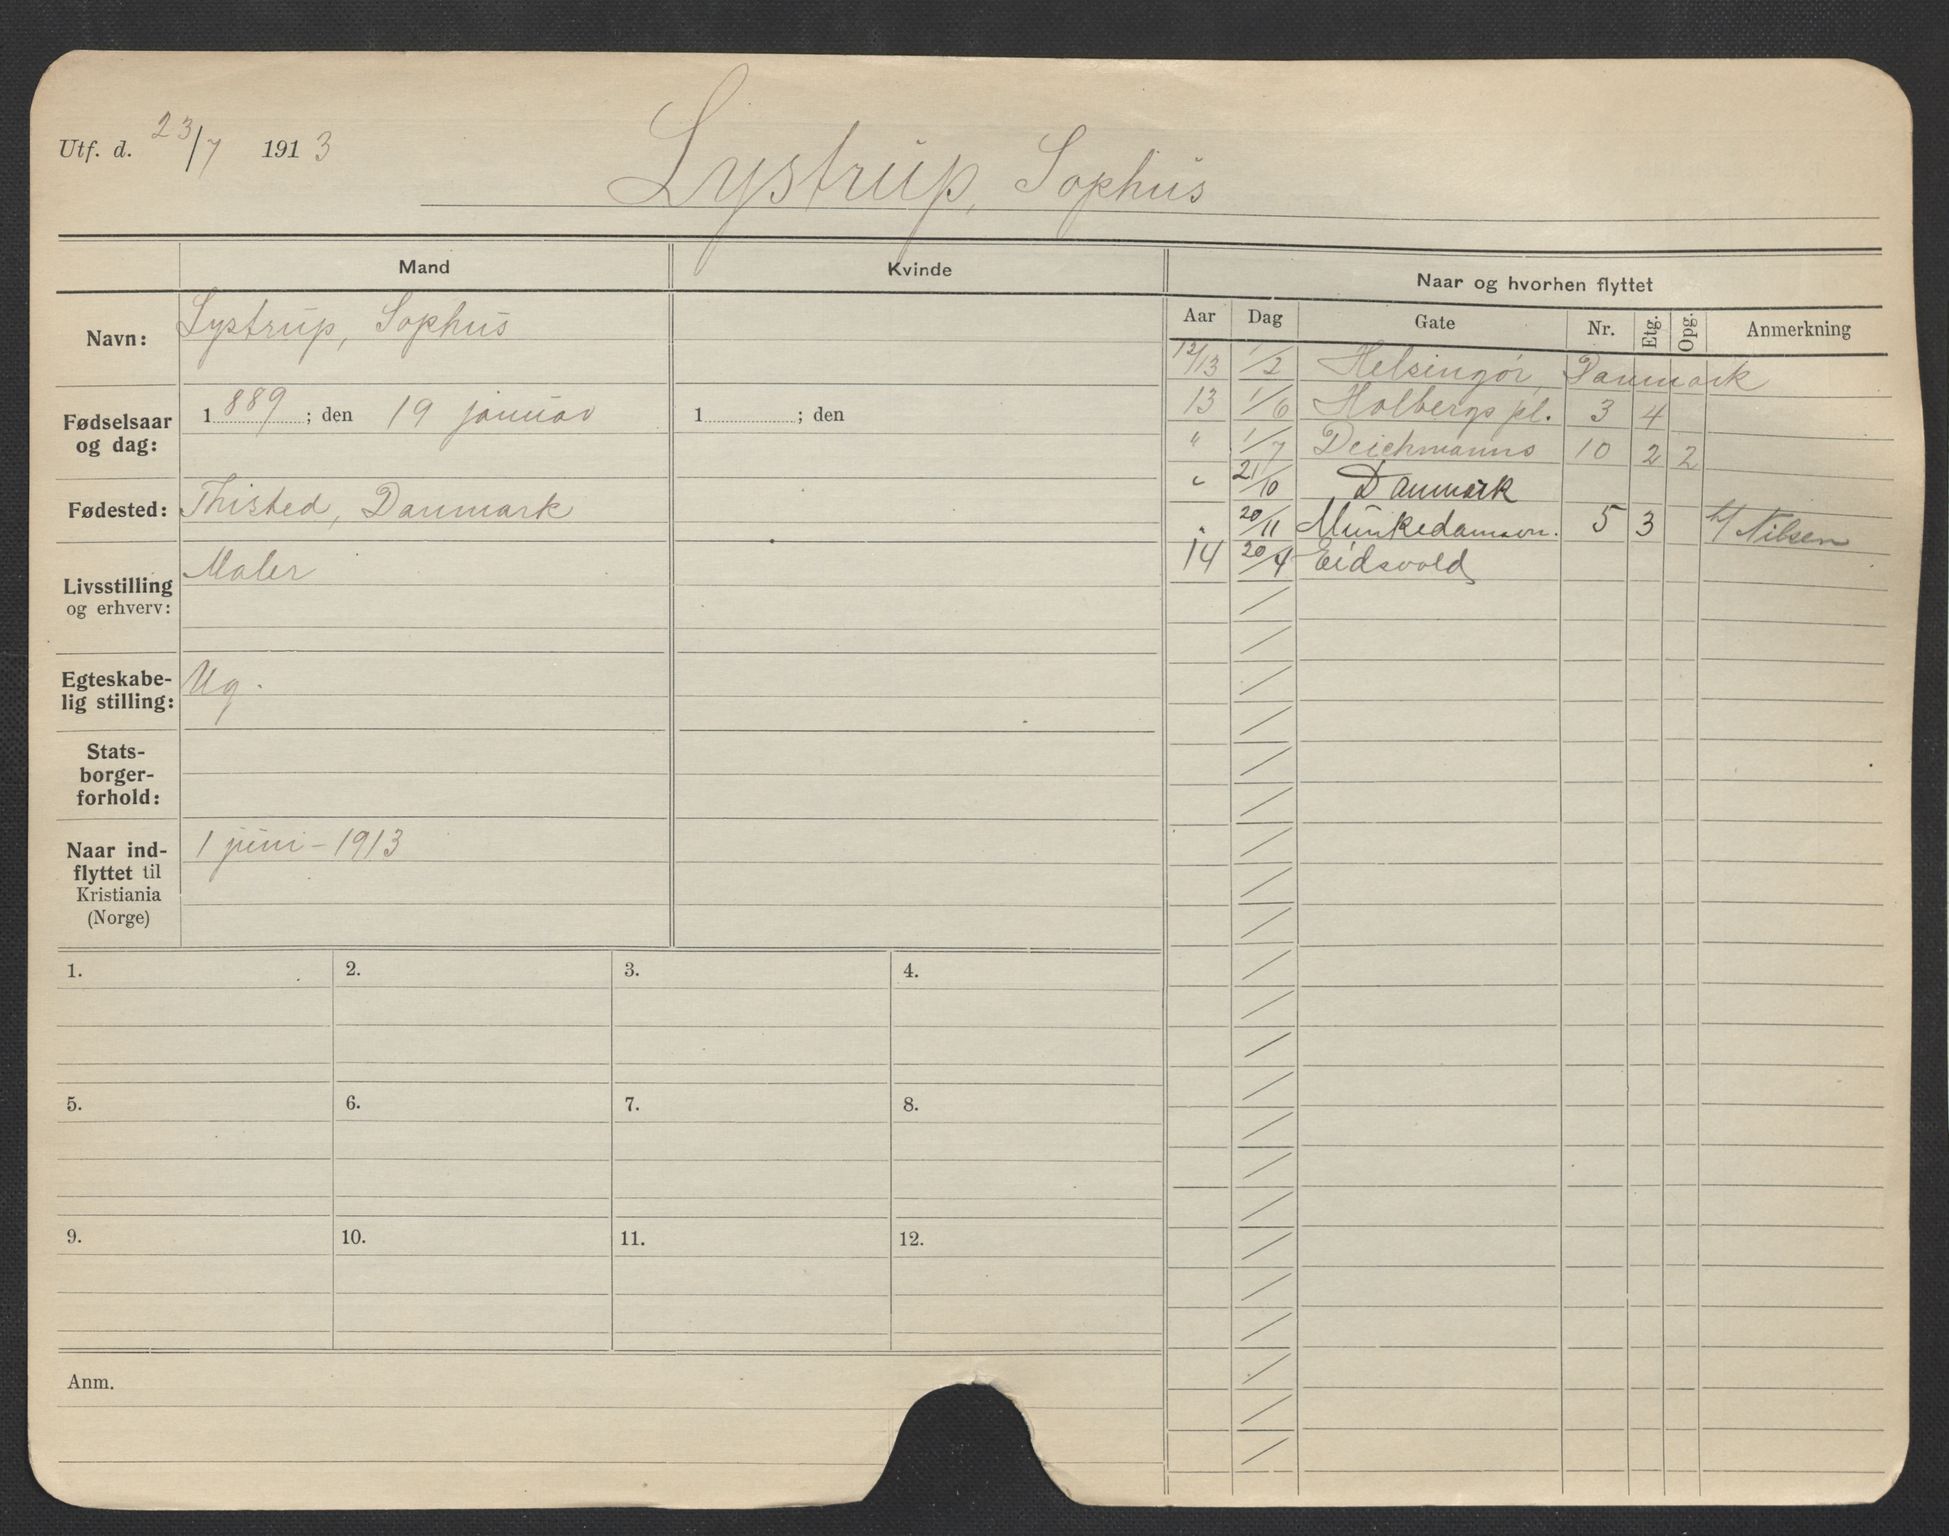 Utf. d. 23/7 1913
Lystrup, Sophus
Mand
Kvinde
Naar og hvorhen flyttet
Navn: Lystrup, Sophus
Fødselsaar og dag: 1889; den 19 januar
1 ; den
Fødested: Thisted, Danmark
Livsstilling og erhverv: Maler
Egteskabe-
lig stilling: Ug.
Stats-
borger-
forhold:
Naar ind-
flyttet til
Kristiania
(Norge)
1 juni - 1913
Aar Dag Gate Nr. Etg. Opg. Anmerkning
12/13 1/2 Helsingør, Danmark
13 1/6 Holbergs pl. 3 4
" 1/7 Deichmanns 10 2 2
" 21/10 Danmark
" 20/11 Munkedamsvn. 5 3 h/ Nilsen
14 20/4 Eidsvold
1. 2. 3. 4.
5. 6. 7. 8.
9. 10. 11. 12.
Anm.